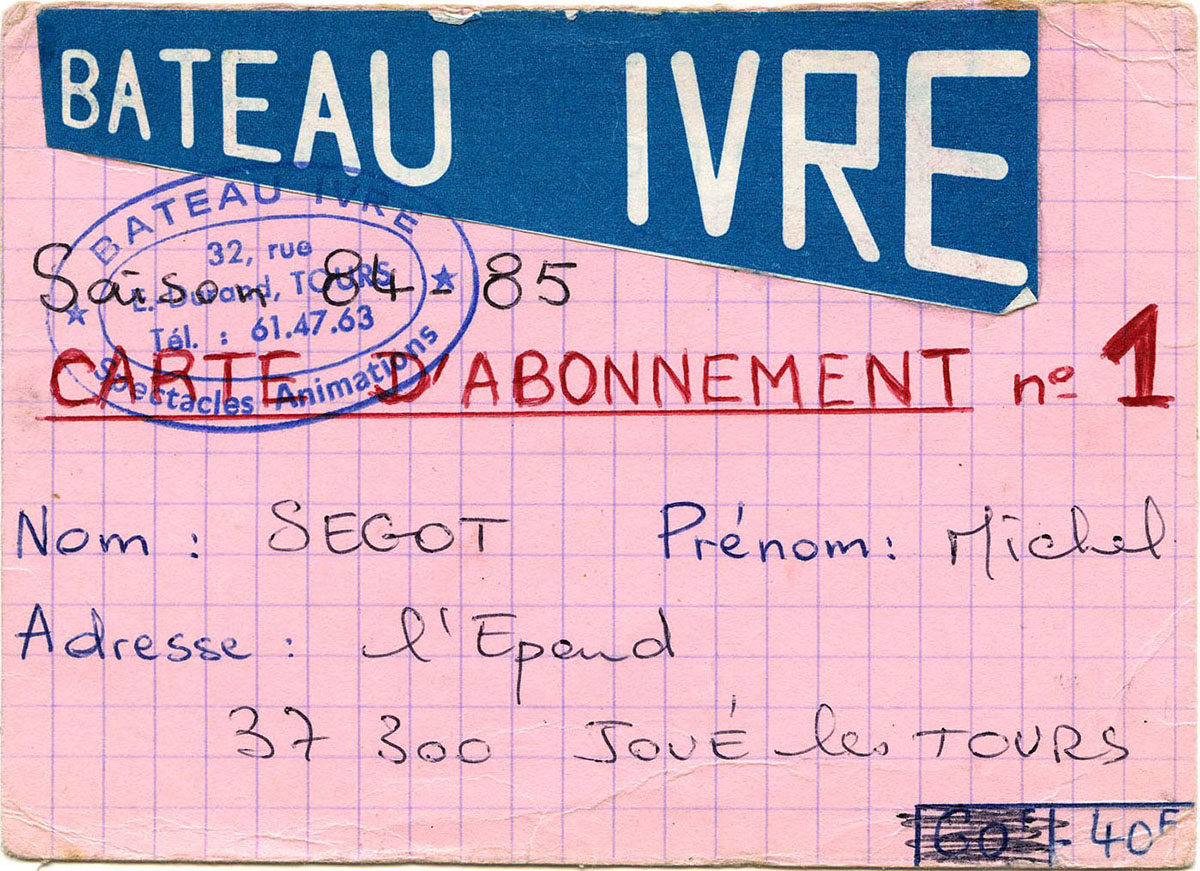 BATEAU IVRE
BATEAU IVRE
32, rue
E. Durand, TOURS
Tél. : 61.47.63
Spectacles Animations
Saison 84-85
CARTE D'ABONNEMENT nº 1
Nom : SEGOT Prénom : Michel
Adresse : l'Epend
37 300 JOUÉ les TOURS
60F - 40F